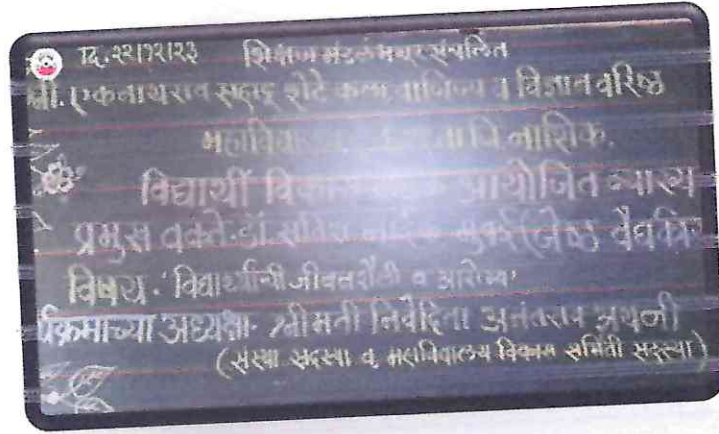 दि.२२।१२।२३ शिक्षण मंडळ भगूर संचलित
श्री. एकनाथराव सहादू शेटे कला, वाणिज्य व विज्ञान वरिष्ठ
जि. नाशिक.
विद्यार्थी विकास आयोजित व्याख्य
प्रमुख वक्ते- डॉ.
विषय - 'विद्यार्थ्यांची जीवनशैली व आरोग्य'
र्यक्रमाच्या अध्यक्षा- श्रीमती निवेदिता अनंतराव
(संस्था सदस्या व महाविद्यालय विकास समिती सदस्या)